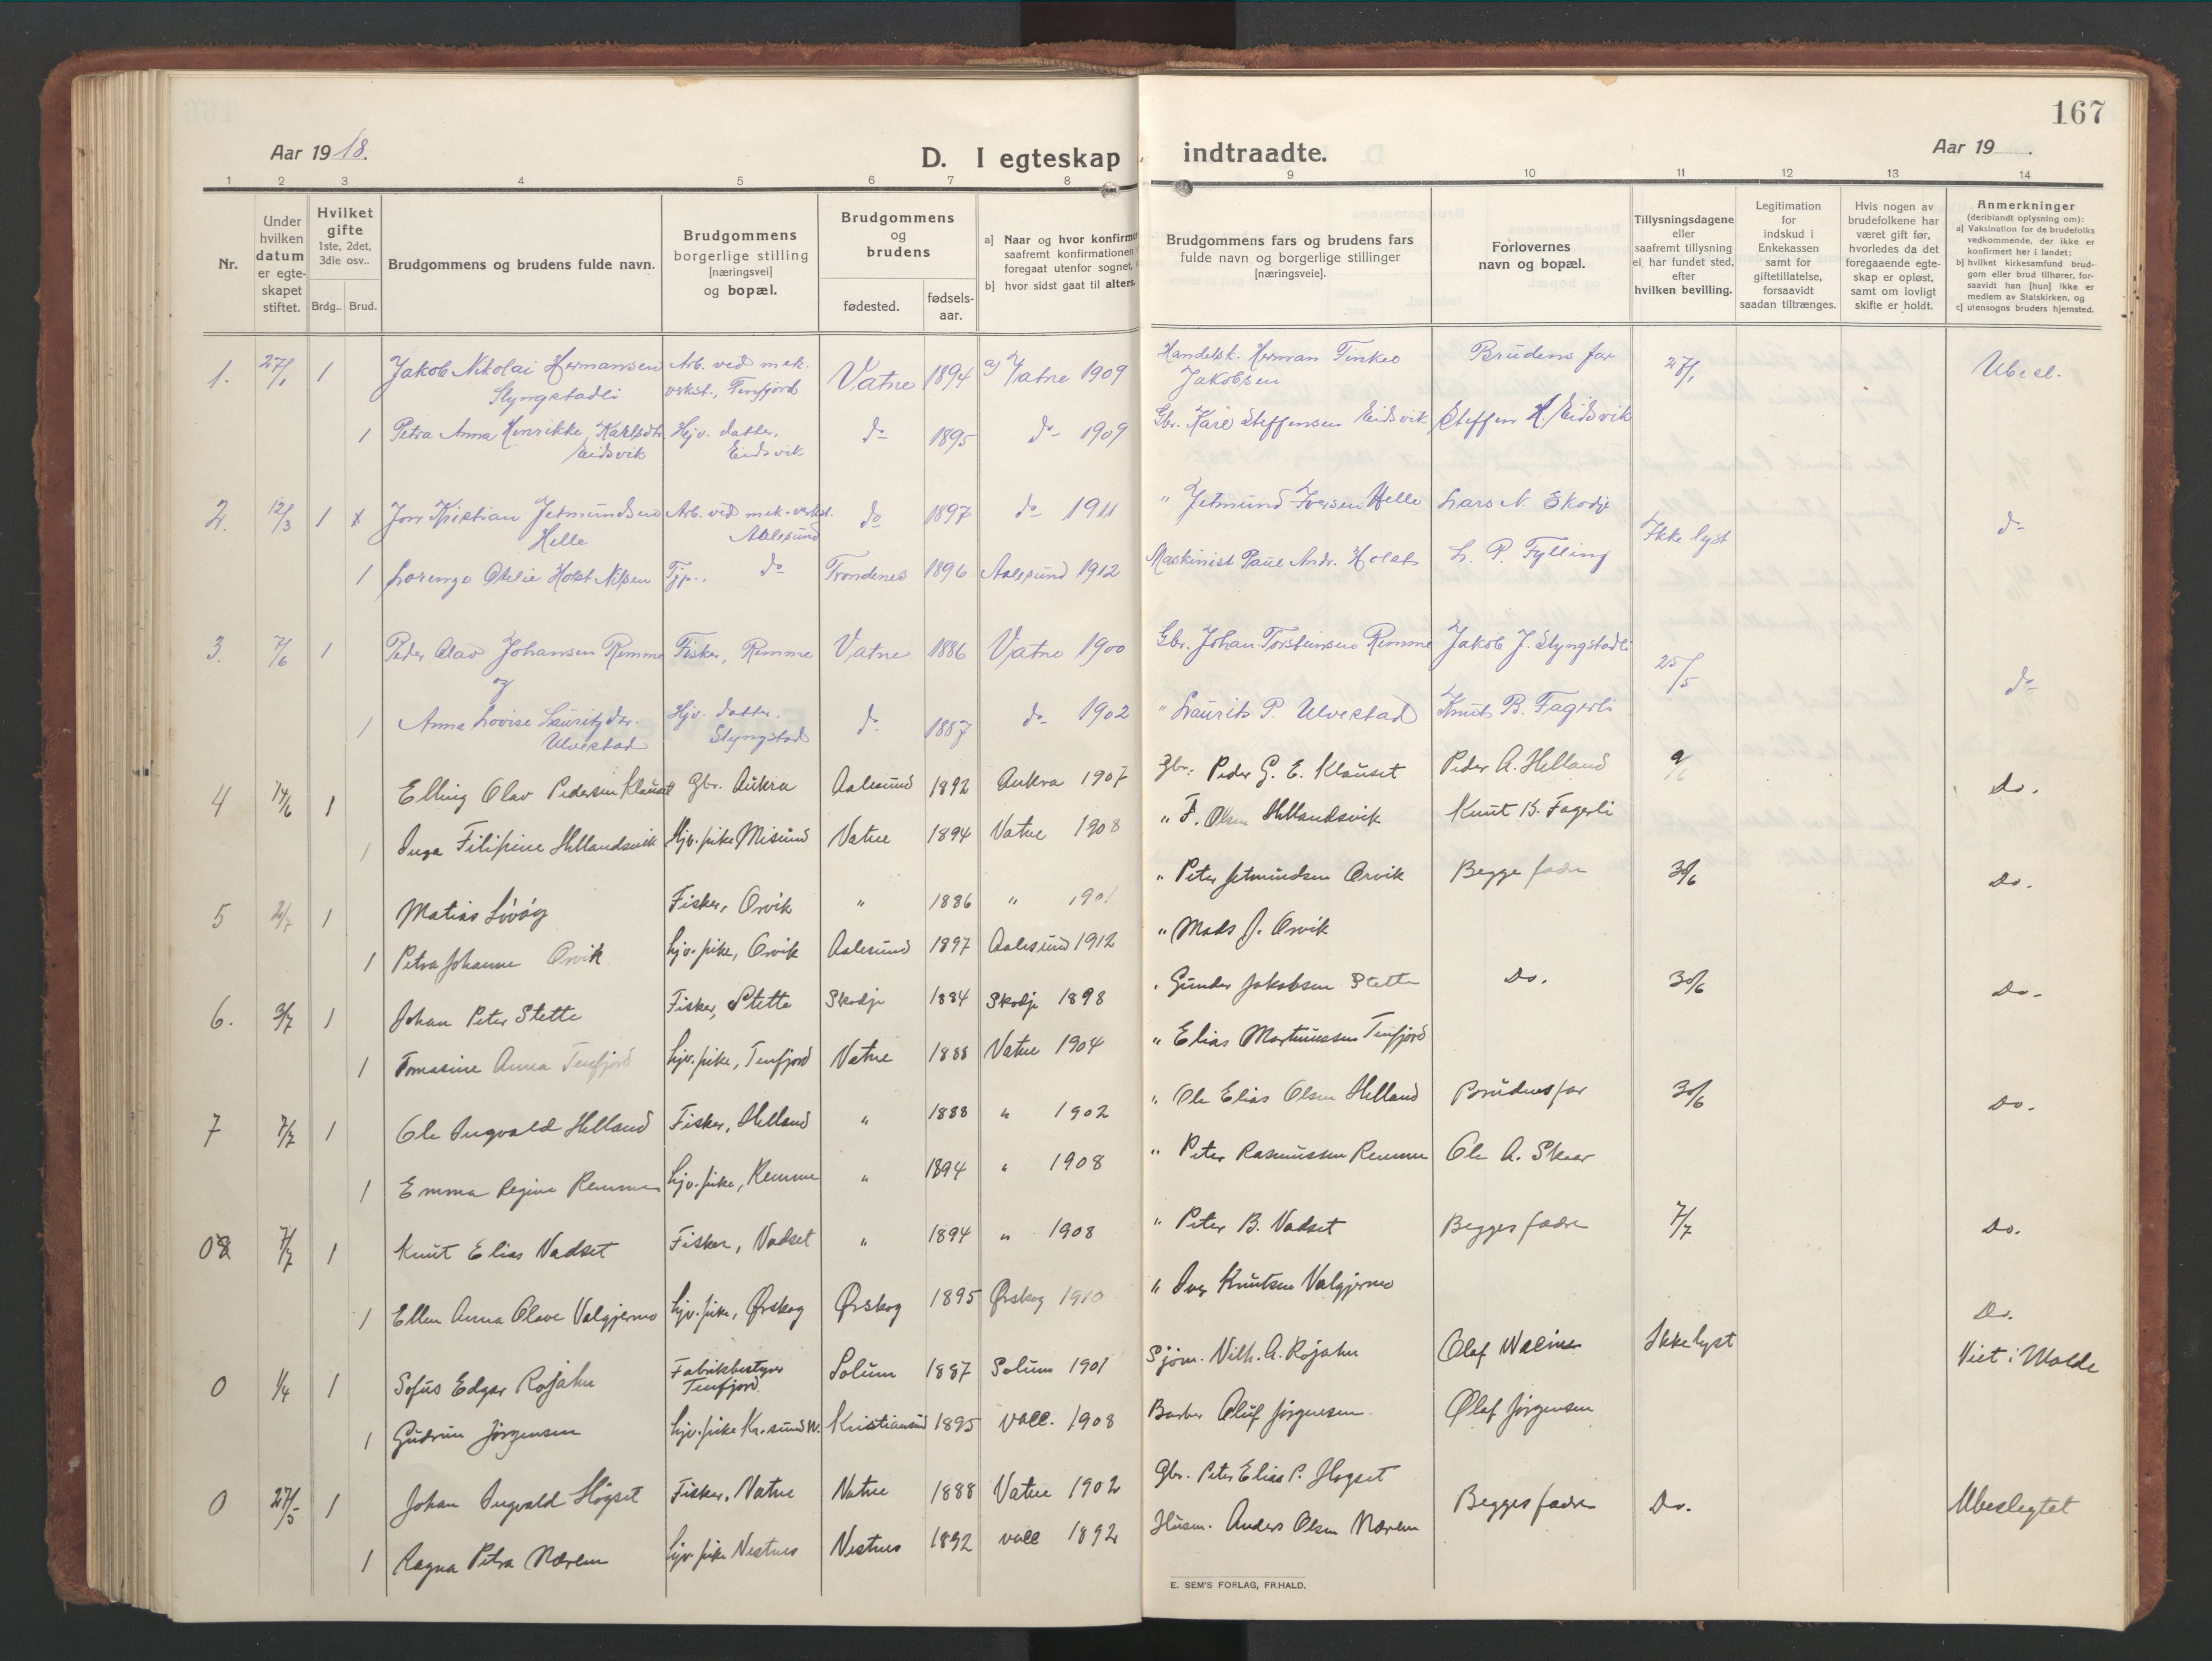 167
Aar 1918.
D. I egteskap indtraadte.
Aar 19 .
1 2 3 4 5 6 7 8 9 10 11 12 13 14
Nr.
Under hvilken datum er egte-skapet stiftet.
Hvilket gifte 1ste, 2det, 3die osv..
Brdg.. Brud.
Brudgommens og brudens fulde navn.
Brudgommens borgerlige stilling [næringsvei] og bopæl.
Brudgommens og brudens
fødested. fødsels-aar.
a] Naar og hvor konfirme
saafremt konfirmationen
foregaat utenfor sognet,
b] hvor sidst gaat til alters.
Brudgommens fars og brudens fars fulde navn og borgerlige stillinger [næringsveie].
Forlovernes navn og bopæl.
Tillysningsdagene eller saafremt tillysning ei har fundet sted, efter hvilken bevilling.
Legitimation for indskud i Enkekassen samt for giftetillatelse, forsaavidt saadan tiltrænges.
Hvis nogen av brudefolkene har været gift før, hvorledes da det foregaaende egte-skap er opløst, samt om lovligt skifte er holdt.
Anmerkninger (deriblandt oplysning om): a] Vaksination for de brudefolks vedkommende, der ikke er konfirmert her i landet; b] hvilket kirkesamfund brud-gom eller brud tilhører, for-saavidt han [hun] ikke er medlem av Statskirken, og c] utensogns bruders hjemsted.
1. 27/1 1 Jakob Nikolai Hermansen Slyngstadli Arb. ved mek. verkst., Tenfjord Vatne 1894 a) Vatne 1909 Handelsk. Herman Tinkeo Jakobsen Brudens far 27/1 Ubesl.
1 Petra Anna Henrikke Karlsdtr. Eidsvik Hjv. datter, Eidsvik do 1895 do 1909 Gbr. Karl Steffensen Eidsvik Steffen H. Eidsvik
2. 12/3 1 x Jon Kristian Jetmundsen Helle Arb. ved mek. verkst. Aalesund do 1897 do 1911 " Jetmund Iversen Helle Lars N. Skodje Ikke lyst do
1 Lorenze Otelie Holst Nilsen Tjp., do Trondenes 1896 Aalesund 1912 Maskinist Paul Andr. Holst L. P. Fylling
3. 7/6 1 Peder Olav Johansen Remme Fisker, Remme Vatne 1886 Vatne 1900 Gbr. Johan Torsteinsen Remme Jakob J. Slyngstadli 25/5 do
og
1 Anna Lovise Lauritzdtr. Ulvestad Hjv. datter, Slyngstad do 1887 do 1902 " Laurits P. Ulvestad Knut B. Fagerli
4 14/6 1 Elling Olav Pedersen Klauset Gbr. Aukra Aalesund 1892 Aukra 1907 Gbr. Peder G. E. Klauset Peder A. Helland 9/6 Do.
1 Inga Filipine Hellandsvik Hjv. pike Misund Vatne 1894 Vatne 1908 " F. Olsen Hellandsvik Knut B. Fagerli
5 2/7 1 Matias Lövög Fisker, Orvik " 1886 " 1901 " Peter Jetmundsen Orvik Begge fædre 30/6 Do.
1 Petra Johanne Orvik Hjv. pike, Orvik Aalesund 1897 Aalesund 1912 " Mads J. Orvik
6. 3/7 1 Johan Peter Stette Fisker, Stette Skodje 1884 Skodje 1898 " Gunder Jakobsen Stette Do. 30/6 Do.
1 Tomasine Anna Tenfjord Hjv. pike, Tenfjord Vatne 1888 Vatne 1904 " Elias Martinussen Tenfjord
7 7/7 1 Ole Ingvald Helland Fisker, Helland " 1888 " 1902 " Ole Elias Olsen Helland Brudens far 30/6 Do.
1 Emma Regine Remme Hjv. pike, Remme " 1894 " 1908 " Peter Rasmussen Remme Ole A. Skaar
08 7/7 1 Knut Elias Vadset Fisker, Vadset " 1894 " 1908 " Peter B. Vadset Begges fædre 7/7 Do.
1 Ellen Anna Olave Valgjermo Hjv. pike, Ørskog Ørskog 1895 Ørskog 1910 " Iver Knutsen Valgjermo
Do.
0 1/4 1 Sofus Edgar Rojahn Fabrikbestyrer Tenfjord Solum 1887 Solum 1901 Sjöm. Vilh. A. Rojahn Olaf Ikke lyst Viet i Molde
1 Gudrun Jörgensen Hjv. pike Kr.sund N. Kristiansund 1895 vacc. 1908 Barber Oluf Jörgensen Olaf Jörgensen
0 27/5 1 Johan Ingvald Högset Fisker, Vatne Vatne 1888 Vatne 1902 Gbr. Peter Elias P. Högset Begges fædre Do. Ubeslegtet
1 Ragna Petra Nærem Hjv. pike Vestnes Vestnes 1892 vacc 1892 Husm. Anders Olsen Nærem
E. SEM'S FORLAG, FR.HALD.